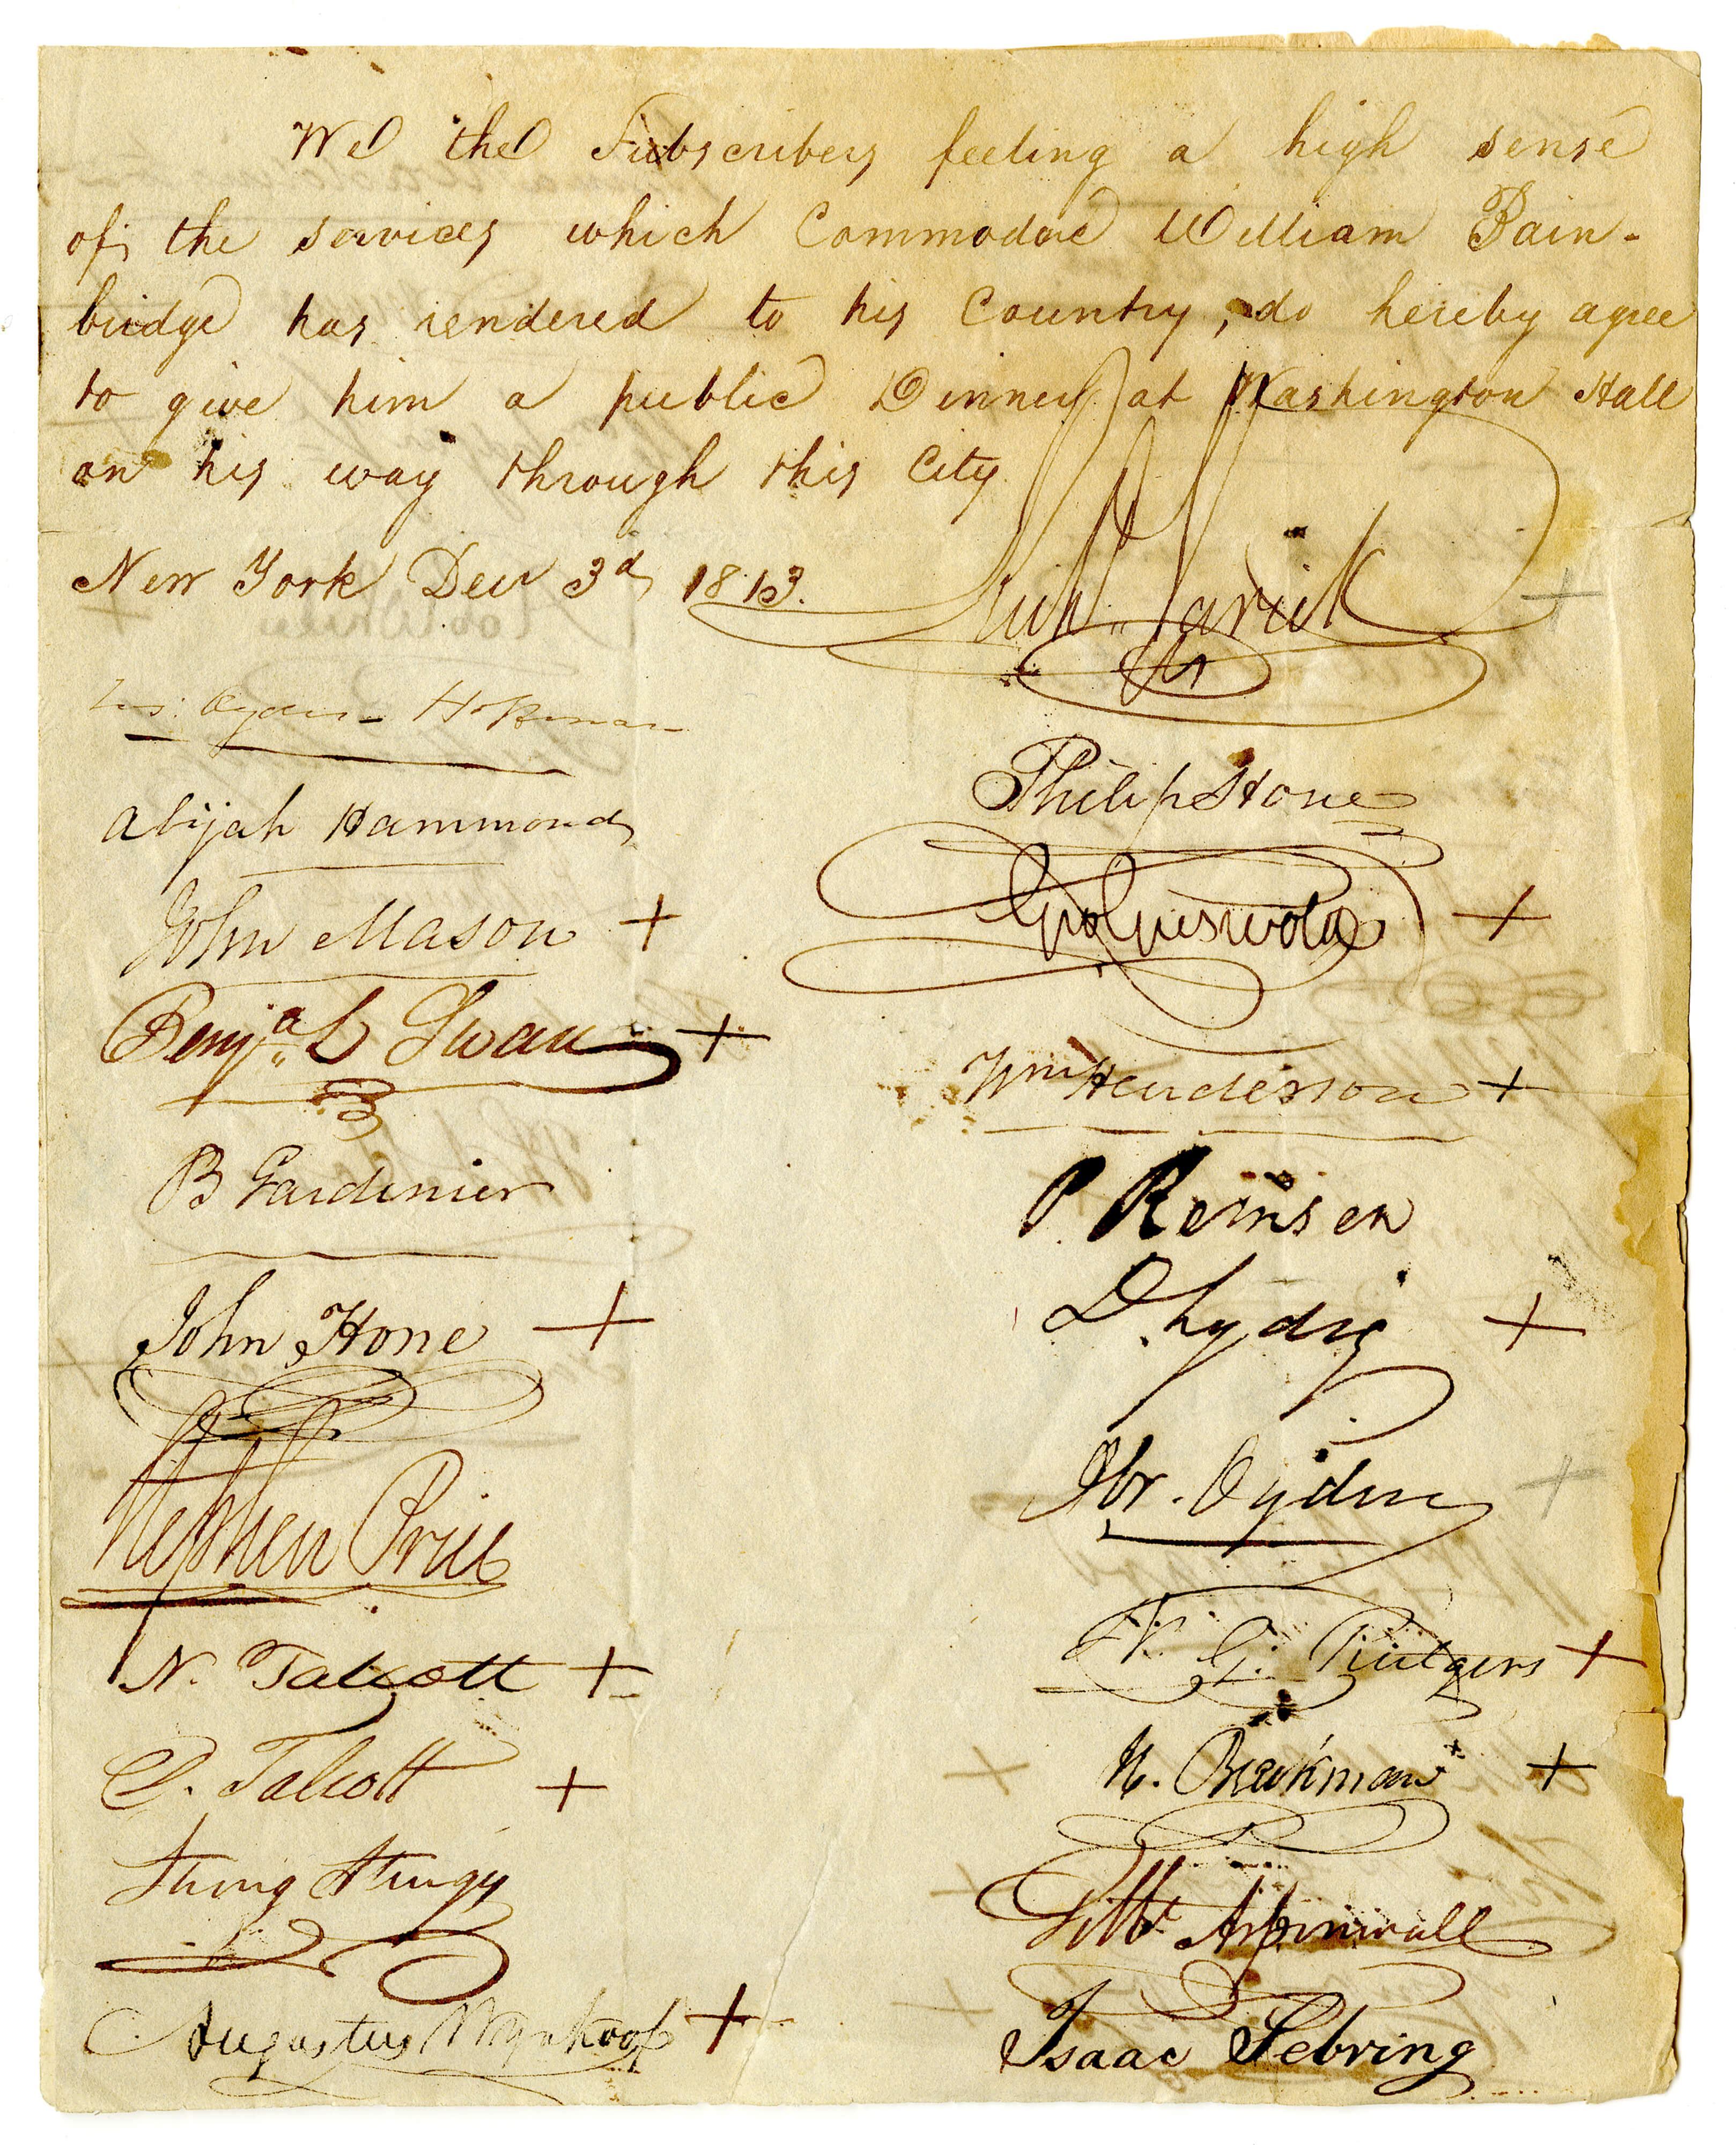 We the Subscribers feeling a high sense
of the services which Commodore William Bain-
bridge has rendered to his Country, do hereby agree
to give him a public Dinner at Washington Hall
on his way through this City
New York Decr 3d 1813.
Richd Varick
Hoffman
Philip Hone
Abijah Hammond
Geo Griswold +
John Mason +
Benja L Swan +
Wm Henderson +
B Gardenier
P. Remsen
John Hone +
D. Lydig +
Stephen Price
Abr. Ogden +
N. Talcott +
N. G. Rutgers +
D. Talcott +
H. Beekman +
Gilbt Aspinwall
Augustus Wynkoop +
Isaac Sebring